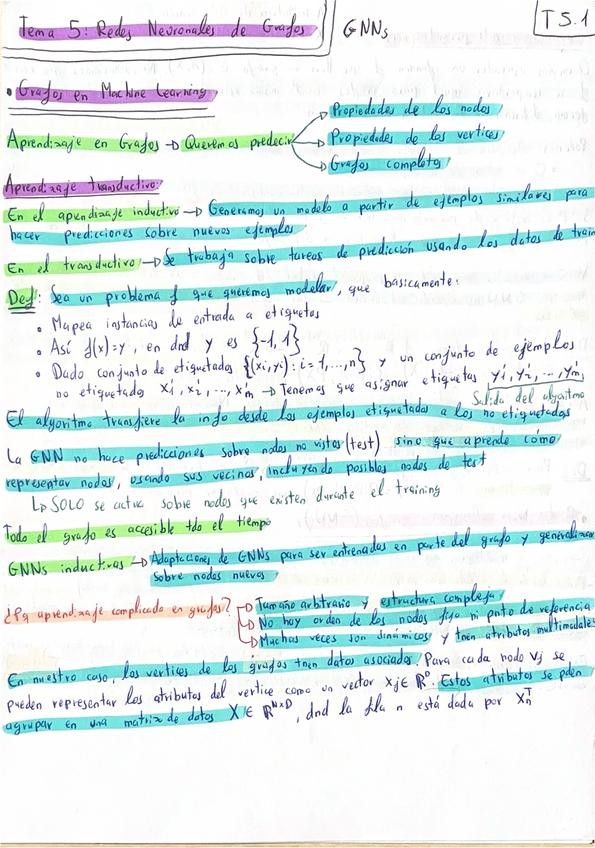 Tema 5: Redes Neuronales de Grafos GNNs T5.1
• Grafos en Machine Learning
Aprendizaje en Grafos → Queremos predecir
→ Propiedades de los nodos
→ Propiedades de los vertices
→ Grafos completos
Aprendizaje transductivo:
En el aprendizaje inductivo → Generamos un modelo a partir de ejemplos similares para
hacer predicciones sobre nuevos ejemplos
En el transductivo → Se trabaja sobre tareas de predicción usando los datos de train
Def: Sea un problema f que queremos modelar, que básicamente:
• Mapea instancias de entrada a etiquetas
• Así f(x)=y, en dnd y es {-1, 1}
• Dado conjunto de etiquetados {(xi, yi): i=1, ..., n} y un conjunto de ejemplos
no etiquetado x'1, x'2, ..., x'm → Tenemos que asignar etiquetas y'1, y'2, ..., y'm
Salida del algoritmo
El algoritmo transfiere la info desde los ejemplos etiquetados a los no etiquetados
La GNN no hace predicciones sobre nodos no vistos (test) sino que aprende cómo
representar nodos, usando sus vecinos, incluyendo posibles nodos de test
↳ SOLO se actua sobre nodos que existen durante el training
Todo el grafo es accesible tdo el tiempo
GNNs inductivas → Adaptaciones de GNNs para ser entrenados en parte del grafo y generalizar
sobre nodos nuevos
¿Pq aprendizaje complicado en grafos?
→ Tamaño arbitrario y estructura compleja
→ No hay orden de los nodos fijo ni pnto de referencia
→ Muchas veces son dinámicos y tnen atributos multimodales
En nuestro caso, los vertices de los grafos tnen datos asociados. Para cada nodo vj se
pueden representar los atributos del vertice como un vector xj ∈ ℝᴰ. Estos atributos se pden
agrupar en una matriz de datos X ∈ ℝᴺˣᴰ, dnd la fila n está dada por xₙᵀ